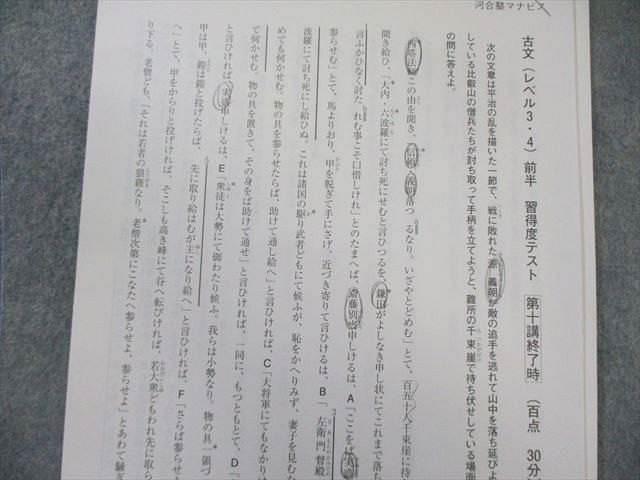 河合塾マナビス
古文(レベル3・4)前半 習得度テスト 第十講終了時 (百点 30分
次の文章は平治の乱を描いた一節で、戦に敗れた源義朝が敵の追手を逃れて山中を落ち延びよ
している比叡山の僧兵たちが討ち取って手柄を立てようと、難所の千束崖で待ち伏せしている場面
の問に答えよ。
西塔法師この由を聞き、「信頼・義朝落つるなり。いざやとどめむ」とて、百五十人千束崖に待
聞き給ひ、「大内・六波羅にて討ち死にせむと言ひつるを、鎌田がよしなき申し状にてこれまで落ち
言ふかひなく討たれむ事こそ口惜しけれ」とのたまへば、斎藤別当申しけるは、A「ここをば実盛
参らせむ」とて、馬よりおり、甲を脱ぎて手にさげ、近づき寄りて言ひけるは、B「、左衛門督殿
波羅にて討ち死にし給ひぬ。これは諸国の駆り武者どもにて候ふが、恥をかへりみず、妻子を見むな
めても何かせむ。物の具を参らせたらば、助けて通し給へ」と言ひければ、C「大将軍にてもなかりけ
て何かせむ。物の具を置きて、その身をば助けて通せ」と言ひければ、一同に、もつともとて、D「
と言ひければ、実盛申しけるは、E「衆徒は大勢にて御わたり候ふ。我らは小勢なり。物の具一領づ
甲は甲、鎧は鎧と投げたらば、先に取り給はむが主になり給へ」と言ひければ、F「さらば参らせよ
へ」とて、甲をからりと投げければ、そこしも高き峰にて谷へ転びければ、若大衆どもわれ先に取ら
り下る。老僧ども、「それは若者の狼藉なり。老僧次第にこなたへ参らせよ、参らせよ」とあわて騒ぎ